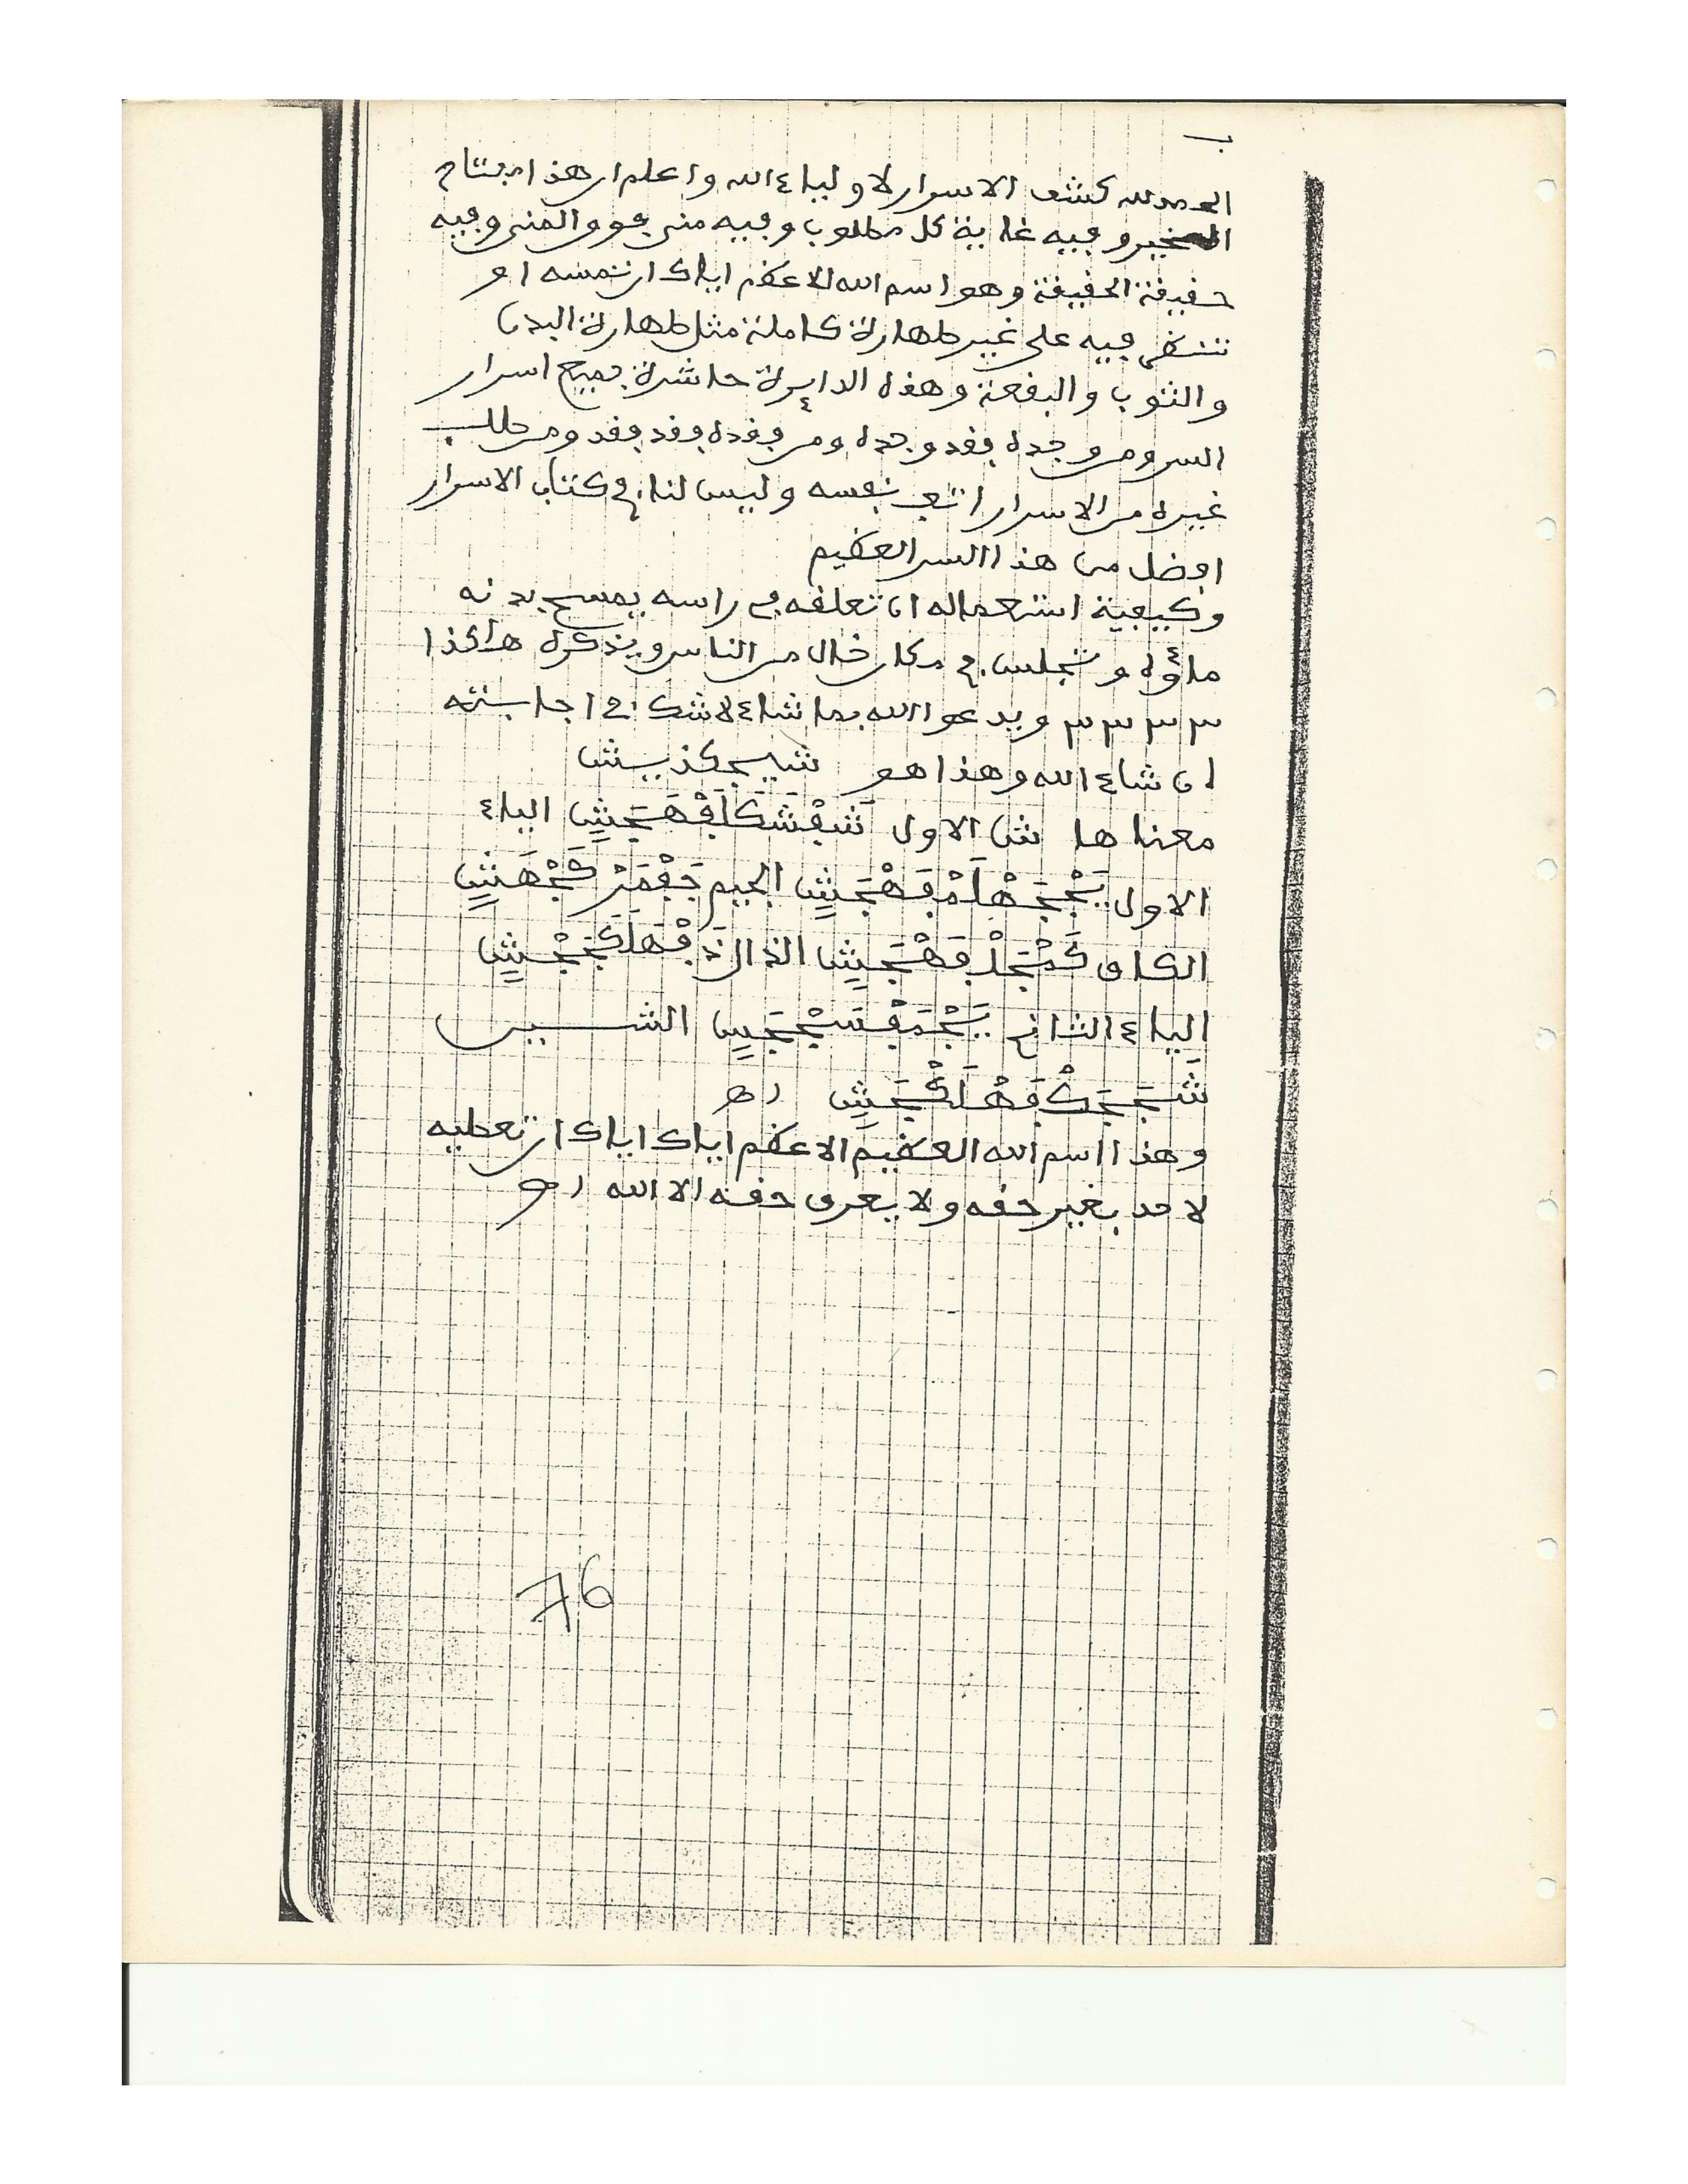 ب
الحمد لله كشف الاسرار لاولياء الله واعلم ان هذا مفتاح
الخير وفيه غاية كل مطلوب وفيه منى فوق المنى وفيه
حقيقة الحقيقة وهو اسم الله الاعظم اياك ان تمسه او
تنظر فيه على غير طهارة كاملة مثل طهارة البدن
والثوب والبقعة وهذه الدايرة حاشرة جميع اسرار
السر ومن وجده فقد وجده ومن فقده فقد فقد ومن طلب
غيره من الاسرار اتعب نفسه وليس لنا في كتاب الاسرار
افضل من هذا السر العظيم
وكيفية استعماله ان تعلقه في راسه يمسح بدنه
وتجلس في مكان خال من الناس ويذكره هاكذا
٣ ٣ ٣ ٣ ويدعوا الله بما شاء لا شك في اجابته
ان شاء الله وهذا هو
معناها ش الاول الياء
الاول الجيم
الكاف الذال
الياء الثاني الشين
اهـ
وهذا اسم الله العظيم الاعظم اياك اياك ان تعطيه
لاحد بغير حقه ولا يعرف حقه الا الله اهـ
76